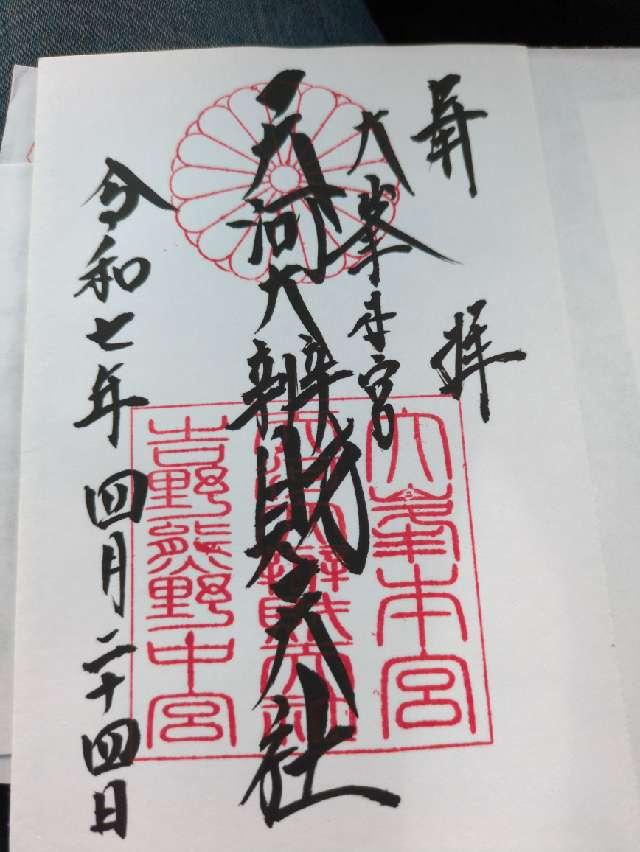 奉拝
大峯本宮
天河大辨財天社
令和七年四月二十四日
大峯本宮
天河大辨財天社
吉野熊野中宮